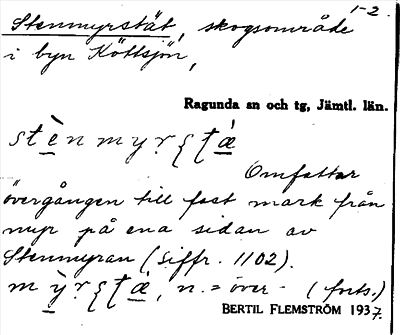 1-2.
Stenmyrstät, skogsområde
i byn Köttsjön,
Ragunda sn och tg, Jämtl. län.
Omfattar
övergången till fast mark från
myr på ena sidan av
Stenmyran (siffr. 1102).
n. = över- (forts.)
BERTIL FLEMSTRÖM 1937.